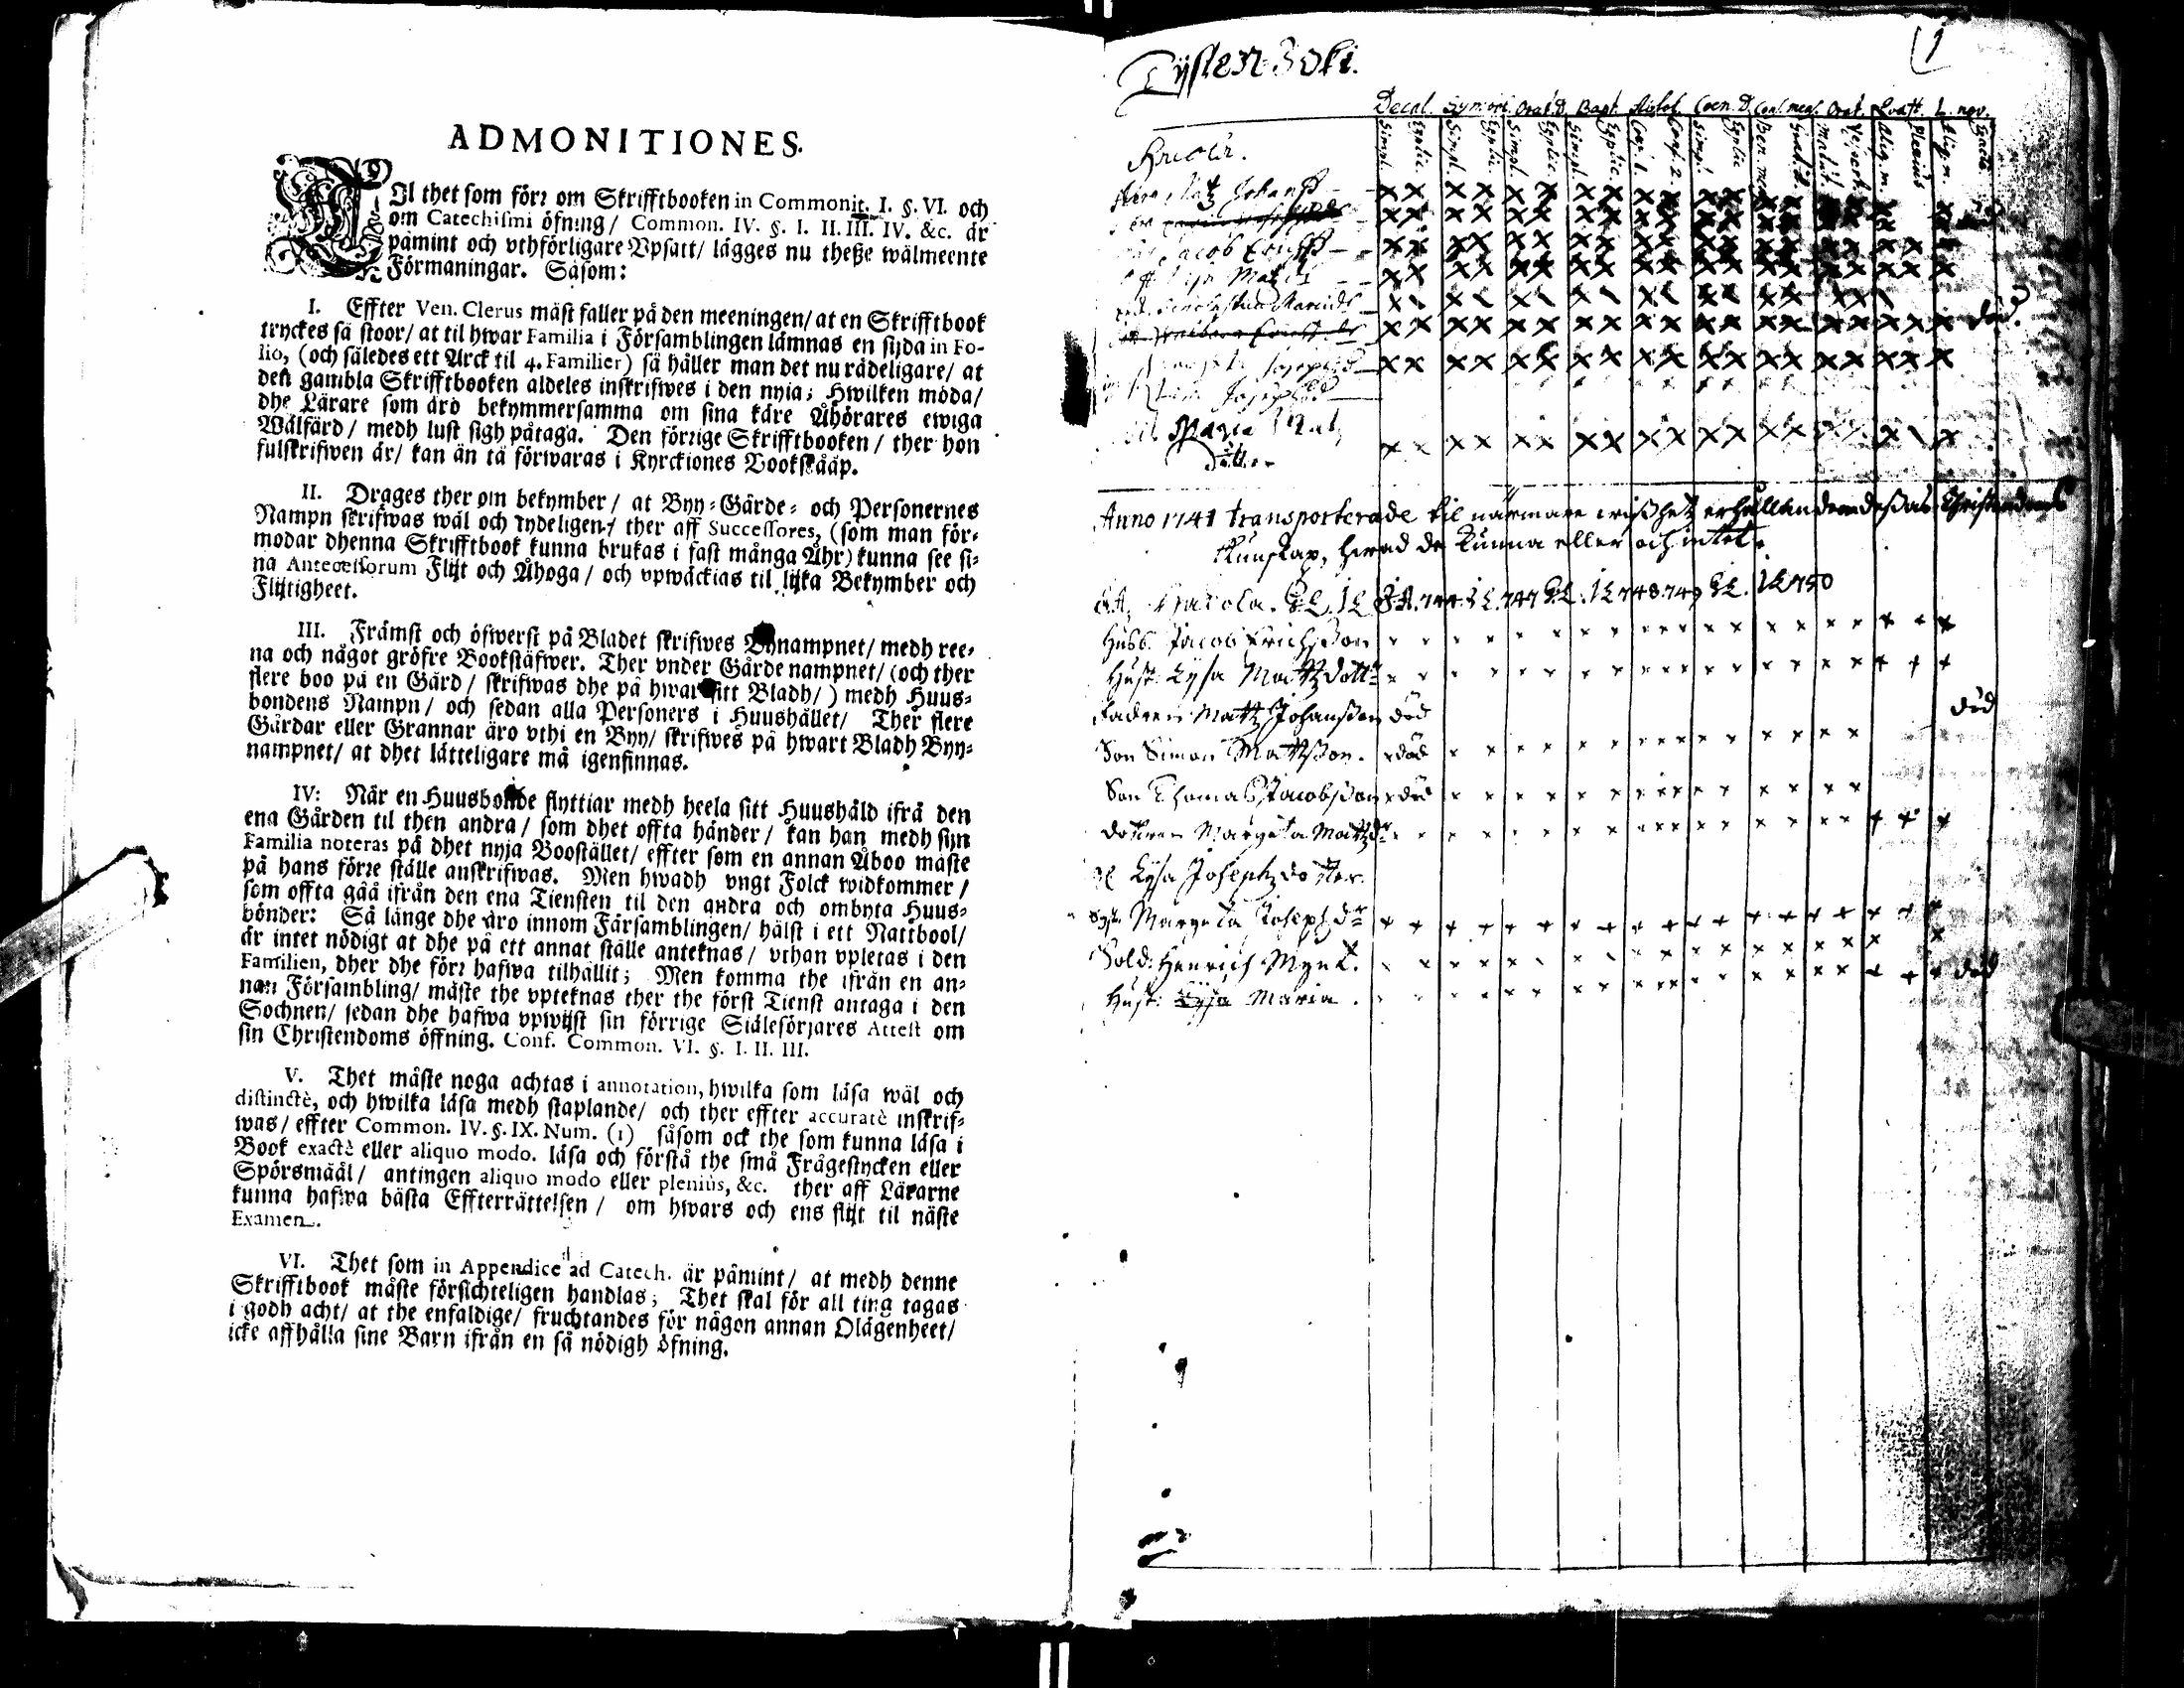 ADMONITIONES.
TIl thet som förr om Skrifftbooken in Commonit. I. §. VI. och
om Catechismi öfning/ Common. IV. §. I. II. III. IV. &c. är
påmint och vthförligare Vpsatt/ lägges nu theße wälmeente
Förmaningar. Såsom:
I. Effter Ven. Clerus mäst faller på den meeningen/ at en Skrifftbook
tryckes så stoor/ at til hwar Familia i Församblingen lämnas en sijda in Fo-
lio, (och således ett Arck til 4. Familier) så håller man det nu rådeligare/ at
den gambla Skrifftbooken aldeles inskrifwes i den nyia; Hwilken möda/
dhe Lärare som äro bekymmersamma om sina käre Åhörares ewiga
Wälfärd/ medh lust sigh påtaga. Den förrige Skrifftbooken/ ther hon
fulskrifwen är/ kan än tå förwaras i Kyrckiones Bookskååp.
II. Drages ther om bekymber/ at Byy-Gårde- och Personernes
Nampn skrifwas wäl och tydeligen/ ther aff Successores, (som man för-
modar dhenna Skrifftbook kunna brukas i fast många Åhr) kunna see si-
na Antecessorum Flijt och Åhoga/ och vpwäckias til lijka Bekymber och
Flijtigheet.
III. Främst och öfwerst på Bladet skrifwes Bynampnet/ medh ree-
na och något gröfre Bookstäfwer. Ther vnder Gårde nampnet/ (och ther
flere boo på en Gård/ skrifwas dhe på hwar sitt Bladh/) medh Huus-
bondens Nampn/ och sedan alla Personers i Huushållet/ Ther flere
Gårdar eller Grannar äro vthi en Byy/ skrifwes på hwart Bladh Byy-
nampnet/ at dhet lätteligare må igenfinnas.
IV: När en Huusbonde flyttiar medh heela sitt Huushåld ifrå den
ena Gården til then andra/ som dhet offta händer/ kan han medh sijn
Familia noteras på dhet nyja Boostället/ effter som en annan Åboo måste
på hans förre ställe anskrifwas. Men hwadh vngt Folck widkommer/
som offta gåå ifrån den ena Tiensten til den andra och ombyta Huus-
bönder: Så länge dhe äro innom Färsamblingen/ hälst i ett Nattbool/
är intet nödigt at dhe på ett annat ställe anteknas/ vthan vpletas i den
Familien, dher dhe förr hafwa tilhållit; Men komma the ifrån en an-
nan Försambling/ måste the vpteknas ther the först Tienst antaga i den
Sochnen/ sedan dhe hafwa vpwijst sin förrige Siälesörjares Attest om
sin Christendoms öffning. Conf. Common. VI. §. I. II. III.
V. Thet måste noga achtas i annotation, hwilka som läsa wäl och
distinctè, och hwilka läsa medh staplande/ och ther effter accuratè inskrif-
was/ effter Common. IV. §. IX. Num. (1) såsom ock the som kunna läsa i
Book exactè eller aliquo modo. läsa och förstå the små Frågestycken eller
Spörsmåål/ antingen aliquo modo eller pleniùs, &c. ther aff Lärarne
kunna hafwa bästa Effterrättelsen/ om hwars och ens flijt til näste
Examen.
VI. Thet som in Appendice ad Catech. är påmint/ at medh denne
Skrifftbook måste försichteligen handlas; Thet skal för all ting tagas
i godh acht/ at the enfaldige/ fruchtandes för någon annan Olägenheet/
icke affhålla sine Barn ifrån en så nödigh öfning.
1
Decal. Symbol. Orat. D. Bapt. Coen. D. Orat. L. nov.
Simpl. Explic. Simpl. Explic. Simpl. Explic. Simpl. Explic. Conf. 1. Conf. 2 Simpl. Explic. Plenius
Matz Johans
Jacob Erichs
död.
Maria Mat
dotter
Anno 1741 transporterade til närmare wißhetz erhållande om deßas Christendoms
Kunskap, hwad de kunna eller och intet.
Husb. Jacob Erichsson
Hust: Lysa Mattzdottr
Fadren Mattz Johansson död död
Son Simon Mattsson. död
Son Thomas Jacobsson död
dottren Margeta Mattzdr
Lysa Josephzdotter.
Margeta Josephdr
Sold: Henrich Mynt.
Hust: Lysa Maria. död